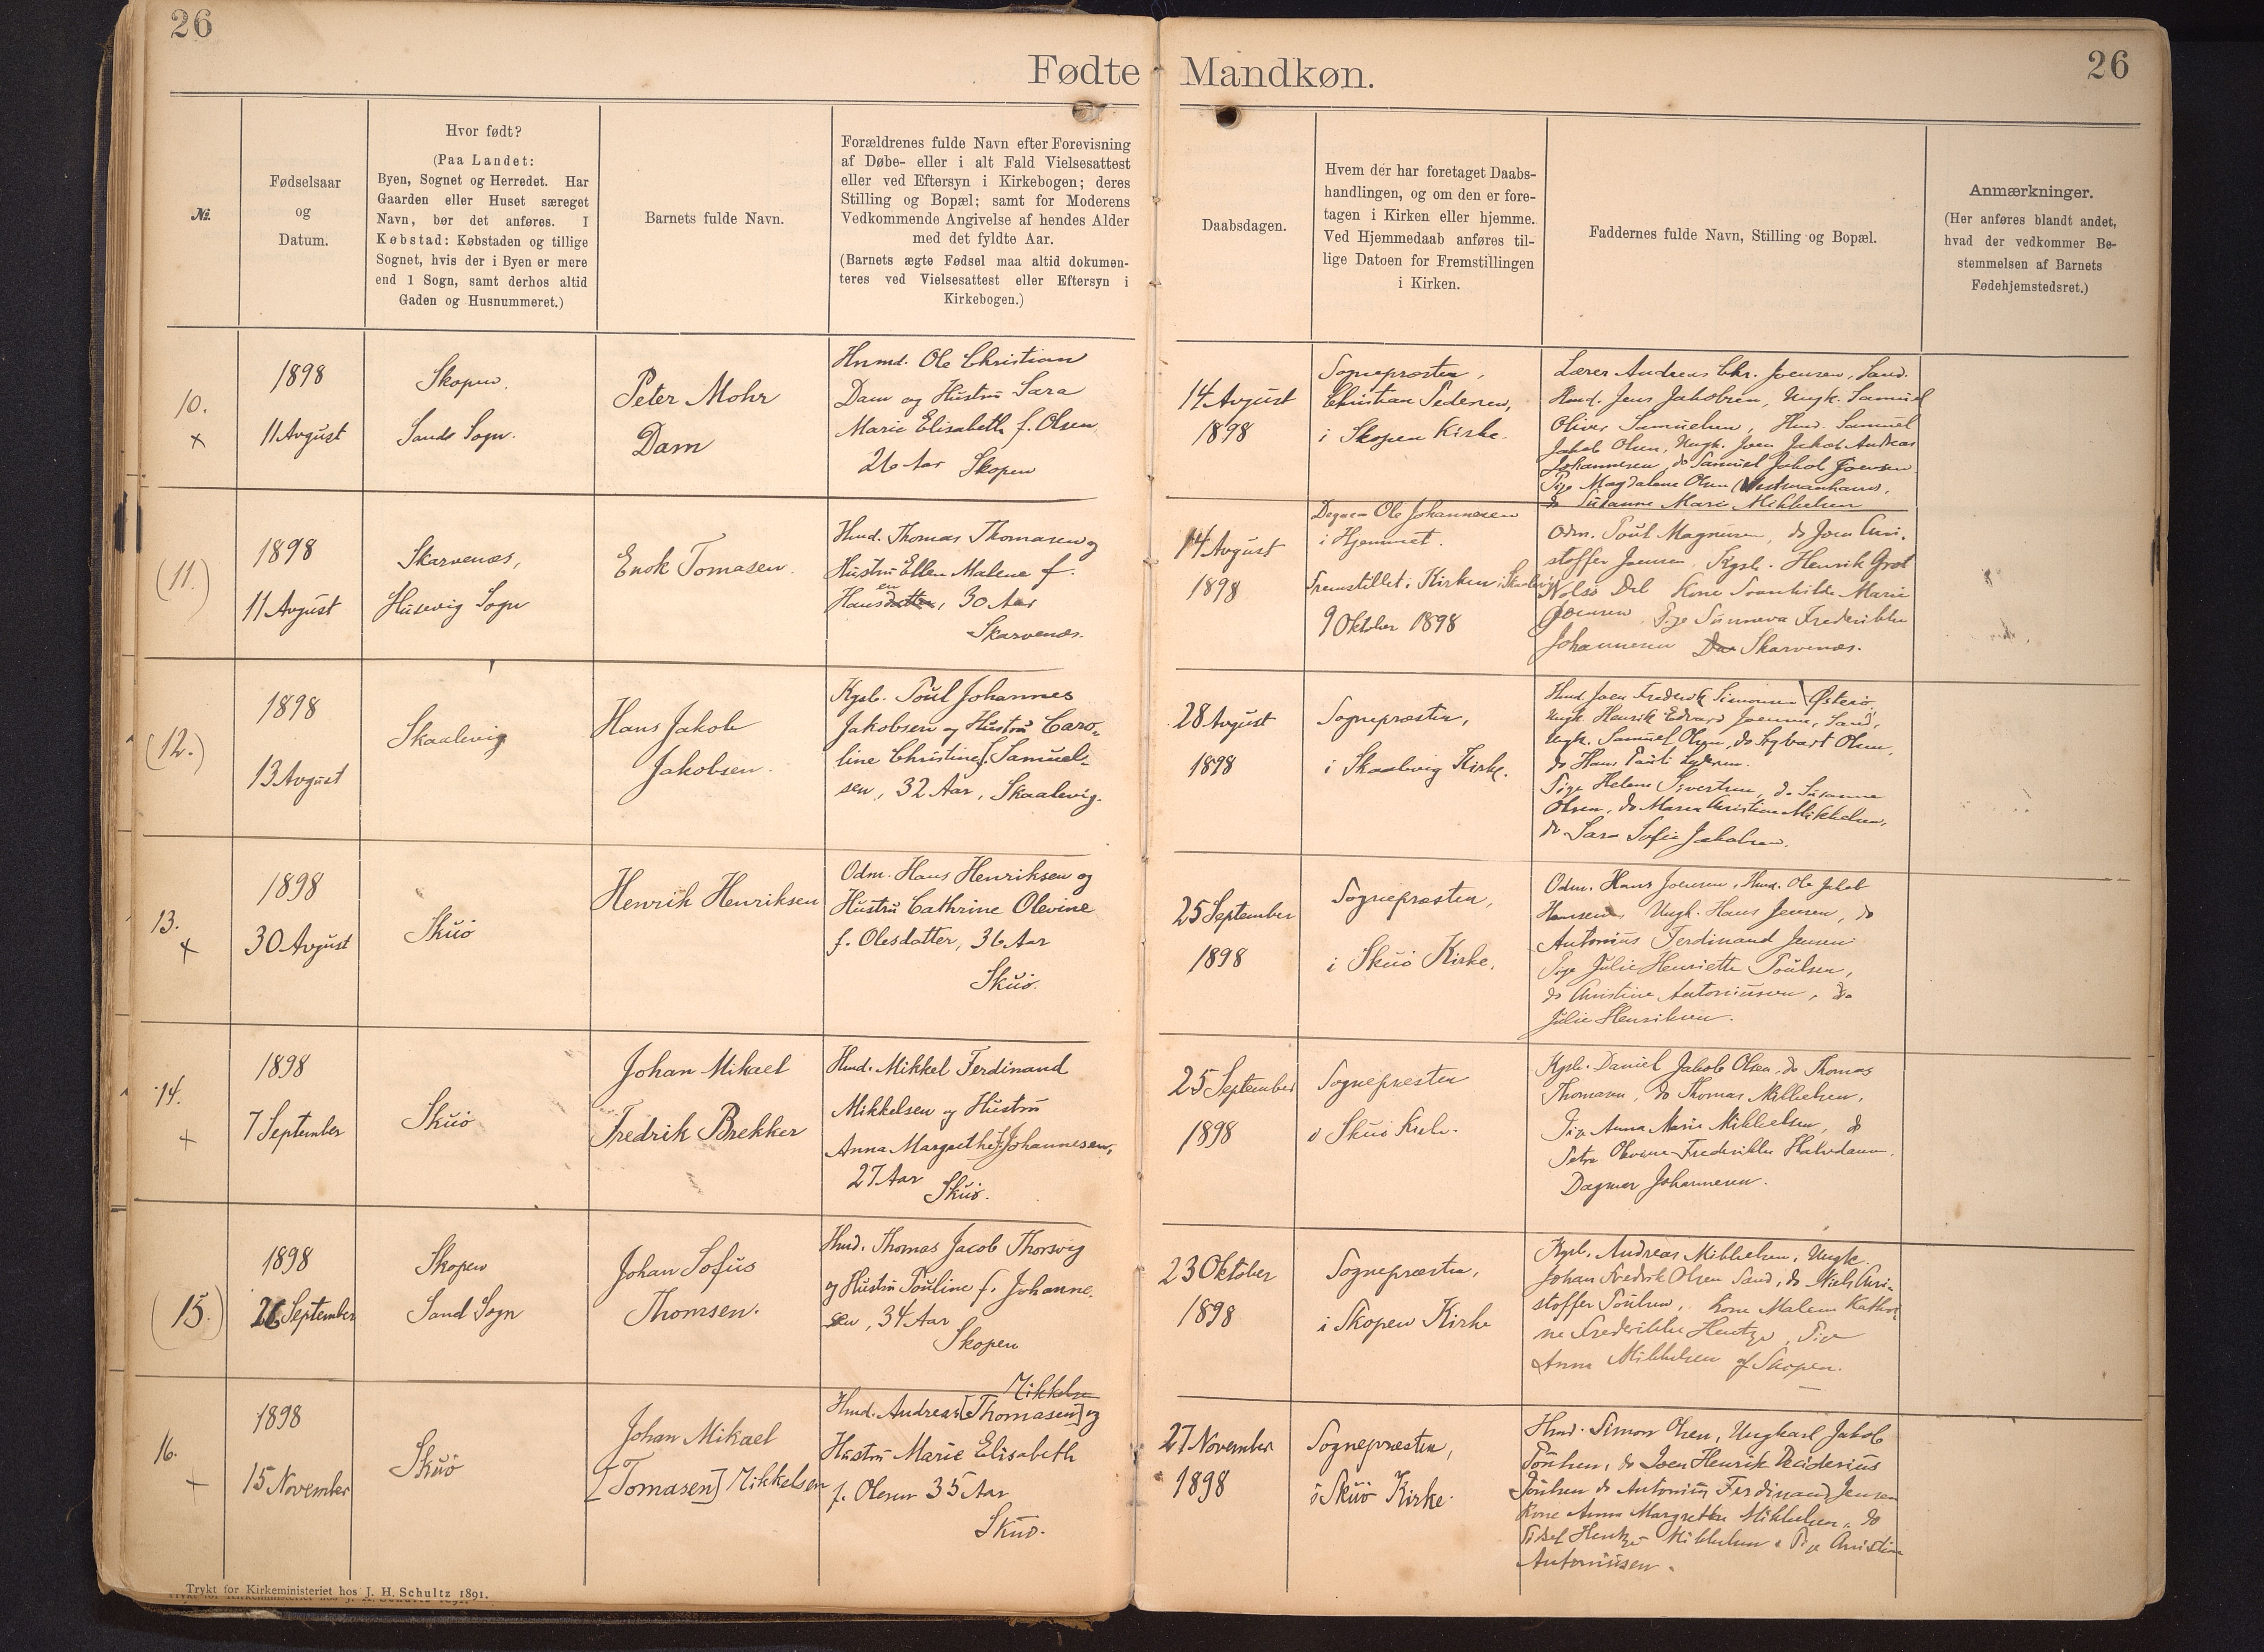 26
Fødte Mandkøn.
26
№.
Fødselsaar
og
Datum.
Hvor født?
(Paa Landet:
Byen, Sognet og Herredet. Har
Gaarden eller Huset særeget
Navn, bør det anføres. I
Købstad: Købstaden og tillige
Sognet, hvis der i Byen er mere
end 1 Sogn, samt derhos altid
Gaden og Husnummeret.)
Barnets fulde Navn.
Forældrenes fulde Navn efter Forevisning
af Døbe- eller i alt Fald Vielsesattest
eller ved Eftersyn i Kirkebogen; deres
Stilling og Bopæl; samt for Moderens
Vedkommende Angivelse af hendes Alder
med det fyldte Aar.
(Barnets ægte Fødsel maa altid dokumen-
teres ved Vielsesattest eller Eftersyn i
Kirkebogen.)
Daabsdagen.
Hvem der har foretaget Daabs-
handlingen, og om den er fore-
tagen i Kirken eller hjemme.
Ved Hjemmedaab anføres til-
lige Datoen for Fremstillingen
i Kirken.
Faddernes fulde Navn, Stilling og Bopæl.
Anmærkninger.
(Her anføres blandt andet,
hvad der vedkommer Be-
stemmelsen af Barnets
Fødehjemstedsret.)
10.
×
1898
11 Avgust
Skopen.
Sands Sogn.
Peter Mohr
Dam
Hnmd. Ole Christian
Dam og Hustru Sara
Marie Elisabeth f. Olsen
26 Aar Skopen
14 Avgust
1898
Sognepræsten,
Christian Pedersen,
i Skopen Kirke.
Lærer Andreas Chr. Joensen, Sand.
Hmd. Jens Jakobsen, Ungk. Samuel
Oliver Samuelsen, Hmd. Samuel
Jakob Olsen, Ungk. Joen Jakob Andreas
Johannesen, do Samuel Jakob Joensen
Pige Magdalene Olsen (Vestmanhavn),
do Susanne Marie Mikkelsen
(11.)
1898
11 Avgust
Skarvenæs,
Husevig Sogn
Enok Tomasen.
Hmd. Thomas Thomasen og
Hustru Ellen Malene f.
Hansdatter, 30 Aar
Skarvenæs.
14 Avgust
1898
Degnen Ole Johannesen
i Hjemmet.
Fremstillet i Kirken i Skaalevig
9 Oktober 1898
Odm. Poul Magnusen, do Joen Chri-
stoffer Joensen, Kgsb. Henrik Grot
Nolsø Dal Kone Svanhilde Marie
Joensen, Pige Sunneva Frederikke
Johannesen Skarvenæs.
(12.)
1898
13 Avgust
Skaalevig
Hans Jakob
Jakobsen.
Kgsb. Poul Johannes
Jakobsen og Hustru Caro-
line Christine f. Samuel-
sen, 32 Aar, Skaalevig.
28 Avgust
1898
Sognepræsten,
i Skaalevig Kirke.
Hmd. Joen Frederik Simonsen Østerø,
Ungk. Henrik Edvard Joensen, Sand,
Ungk. Samuel Olsen, do Sigvart Olsen,
do Hans Pauli
Pige Helene Sivertsen, do Susanne
Olsen, do Maren Christine Mikkelsen,
do Sara Sofie Jakobsen.
13.
×
1898
30 Avgust
Skuø
Henrik Henriksen
Odm. Hans Henriksen og
Hustru Cathrine Olevine
f. Olesdatter, 36 Aar
Skuø.
25 September
1898
Sognepræsten,
i Skuø Kirke.
Odm. Hans Joensen, Hmd. Ole Jakob
Hansen, Ungk. Hans Jensen, do
Antonius Ferdinand Jensen
Pige Julie Henriette Poulsen,
do Christine Antoniusen, do
Julie Henriksen.
14.
×
1898
7 September
Skuø
Johan Mikael
Fredrik Brekker
Hmd. Mikkel Ferdinand
Mikkelsen og Hustru
Anna Margrethe f. Johannesen,
27 Aar
Skuø.
25 September
1898
Sognepræsten
i Skuø Kirke.
Kgsb. Daniel Jakob Olsen, do Thomas
Thomasen, do Thomas Mikkelsen,
Pige Anna Marie Mikkelsen, do
Petra Olevine Frederikke
Dagmar Johannesen.
(15.)
1898
26 September
Skopen
Sand Sogn
Johan Sofus
Thomsen.
Hmd. Thomas Jacob Thorsvig
og Hustru Pouline f. Johanne-
sen, 34 Aar
Skopen
23 Oktober
1898
Sognepræsten,
i Skopen Kirke
Kgsb. Andreas Mikkelsen, Ungk.
Johan Fredrik Olsen Sand, do Niels Chri-
stoffer Poulsen, Kone Malene Kathri
ne Frederikke Hentze, Pige
Anna Mikkelsen af Skopen.
16.
1898
15 November
Skuø
Johan Mikael
[Tomasen] Mikkelsen
Mikkelsen
Hmd. Andreas [Thomasen] og
Hustru Marie Elisabeth
f. Olesen 35 Aar
Skuø.
27 November
1898
Sognepræsten,
i Skuø Kirke.
Hmd. Simon Olsen, Ungkarl Jakob
Poulsen, do Joen Henrik Desiderius
Poulsen do Antonius Ferdinand Jensen
Kone Anna Margrethe Mikkelsen, do
Sidsel Hentze Mikkelsen, Pige Christine
Antoniusen.
Trykt for Kirkeministeriet hos J. H. Schultz 1891.